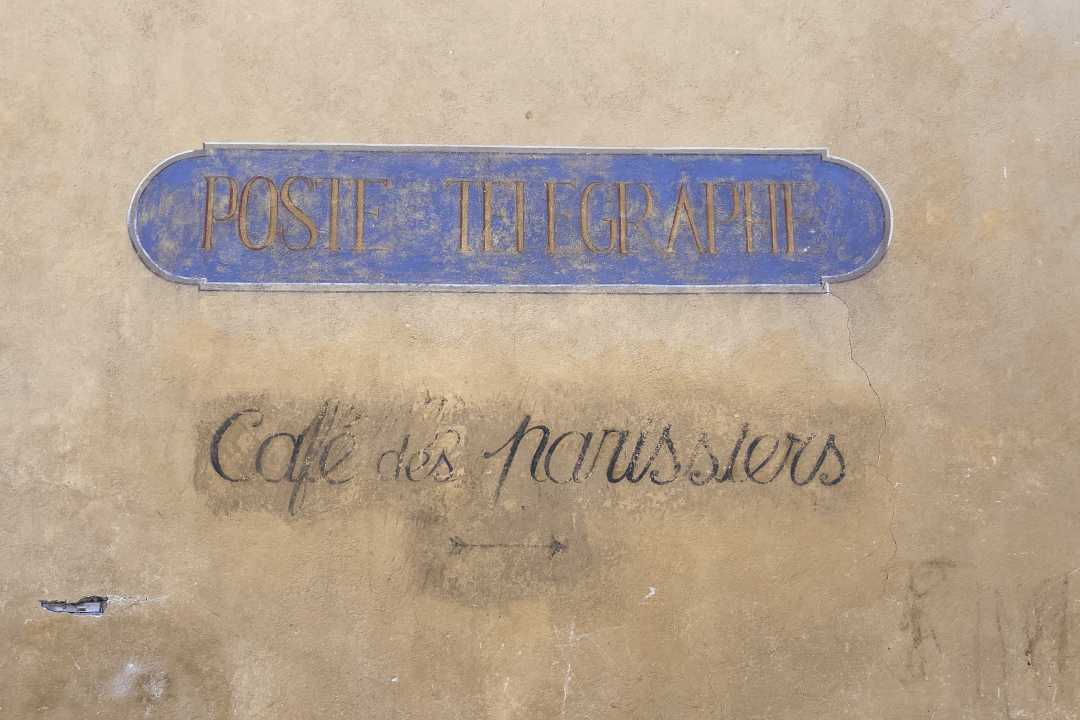 POSTE TELEGRAPHE
Café des parissiers